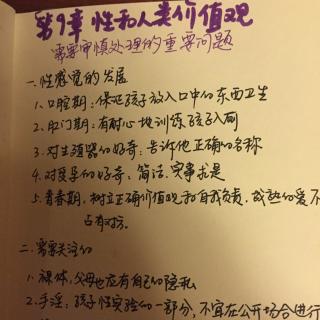 第9章 性和人类价值观
需要审慎处理的重要问题
一.性感觉的发展
1.口腔期:保证孩子放入口中的东西卫生
2.肛门期:有耐心地训练孩子入厕
3.对生殖器的好奇:告诉他正确的名称
4.对怀孕的好奇:简洁.实事求是
5.青春期,树立正确价值观和自我负责,成熟的爱不
占有对方.
二.需要关注的
1.裸体,父母也应有自己的隐私
2.手淫:孩子性实验的一部分,不宜在公开场合进行